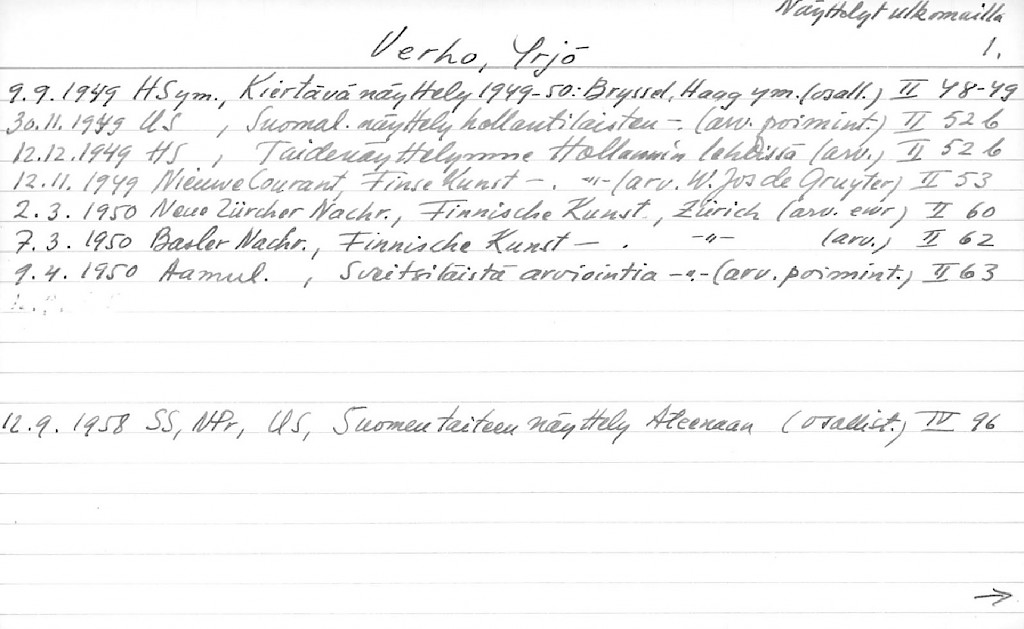 Näyttelyt ulkomailla
1.
Verho, Yrjö
9.9.1949 HSym., Kiertävä näyttely 1949-50: Bryssel, Haag ym. (osall.) II 48-49
30.11.1949 US , Suomal. näyttely hollantilaisten -. (arv. poimint.) II 52 b
12.12.1949 HS , Taidenäyttelymme Hollannin lehdissä (arv.) II 52 b
12.11.1949 Nieuwe Courant, Finse Kunst -. -"- (arv. W. Jos de Gruyter) II 53
2.3.1950 Neue Zürcher Nachr., Finnische Kunst., Zürich (arv. ewr) II 60
7.3.1950 Basler Nachr., Finnische Kunst - . -"- (arv.) II 62
9.4.1950 Aamul. , Sveitsiläistä arviointia -"- (arv. poimint.) II 63
12.9.1958 SS, NPr, US, Suomen taiteen näyttely Ateenaan (osallist.) IV 96
→